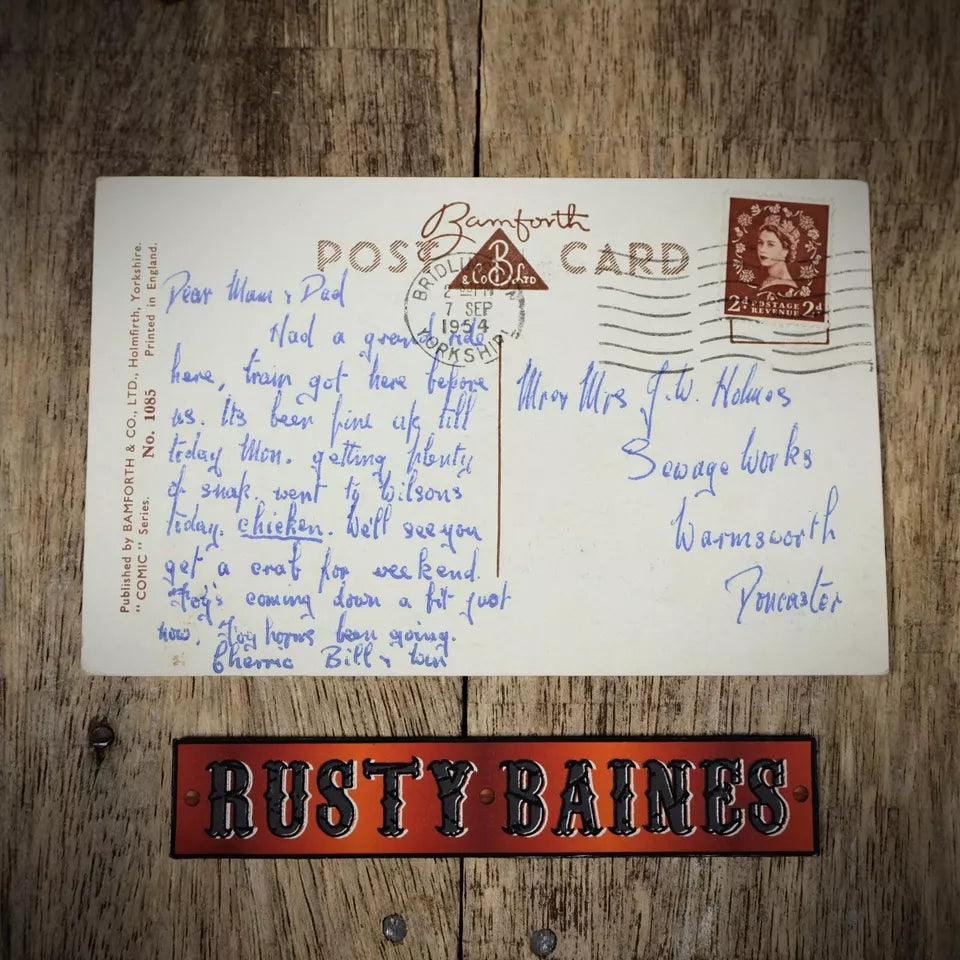 Bamforth
POST CARD
B
& Co Ltd
BRIDLIN
7 SEP
1954
YORKSHIR
2d POSTAGE REVENUE 2d
Published by BAMFORTH & CO., LTD., Holmfirth, Yorkshire.
"COMIC" Series. No. 1085 Printed in England.
Dear Mam & Dad
Had a grand ride
here, train got here before
us. Its been fine up till
today Mon. getting plenty
of snap. went to Wilsons
today. chicken. We'll see you
get a crab for weekend.
Fog's coming down a bit just
now. Fog horns been going.
Cheerio Bill & Win
Mr & Mrs J.W. Holmes
Sewage Works
Warmsworth
Doncaster
RUSTY BAINES